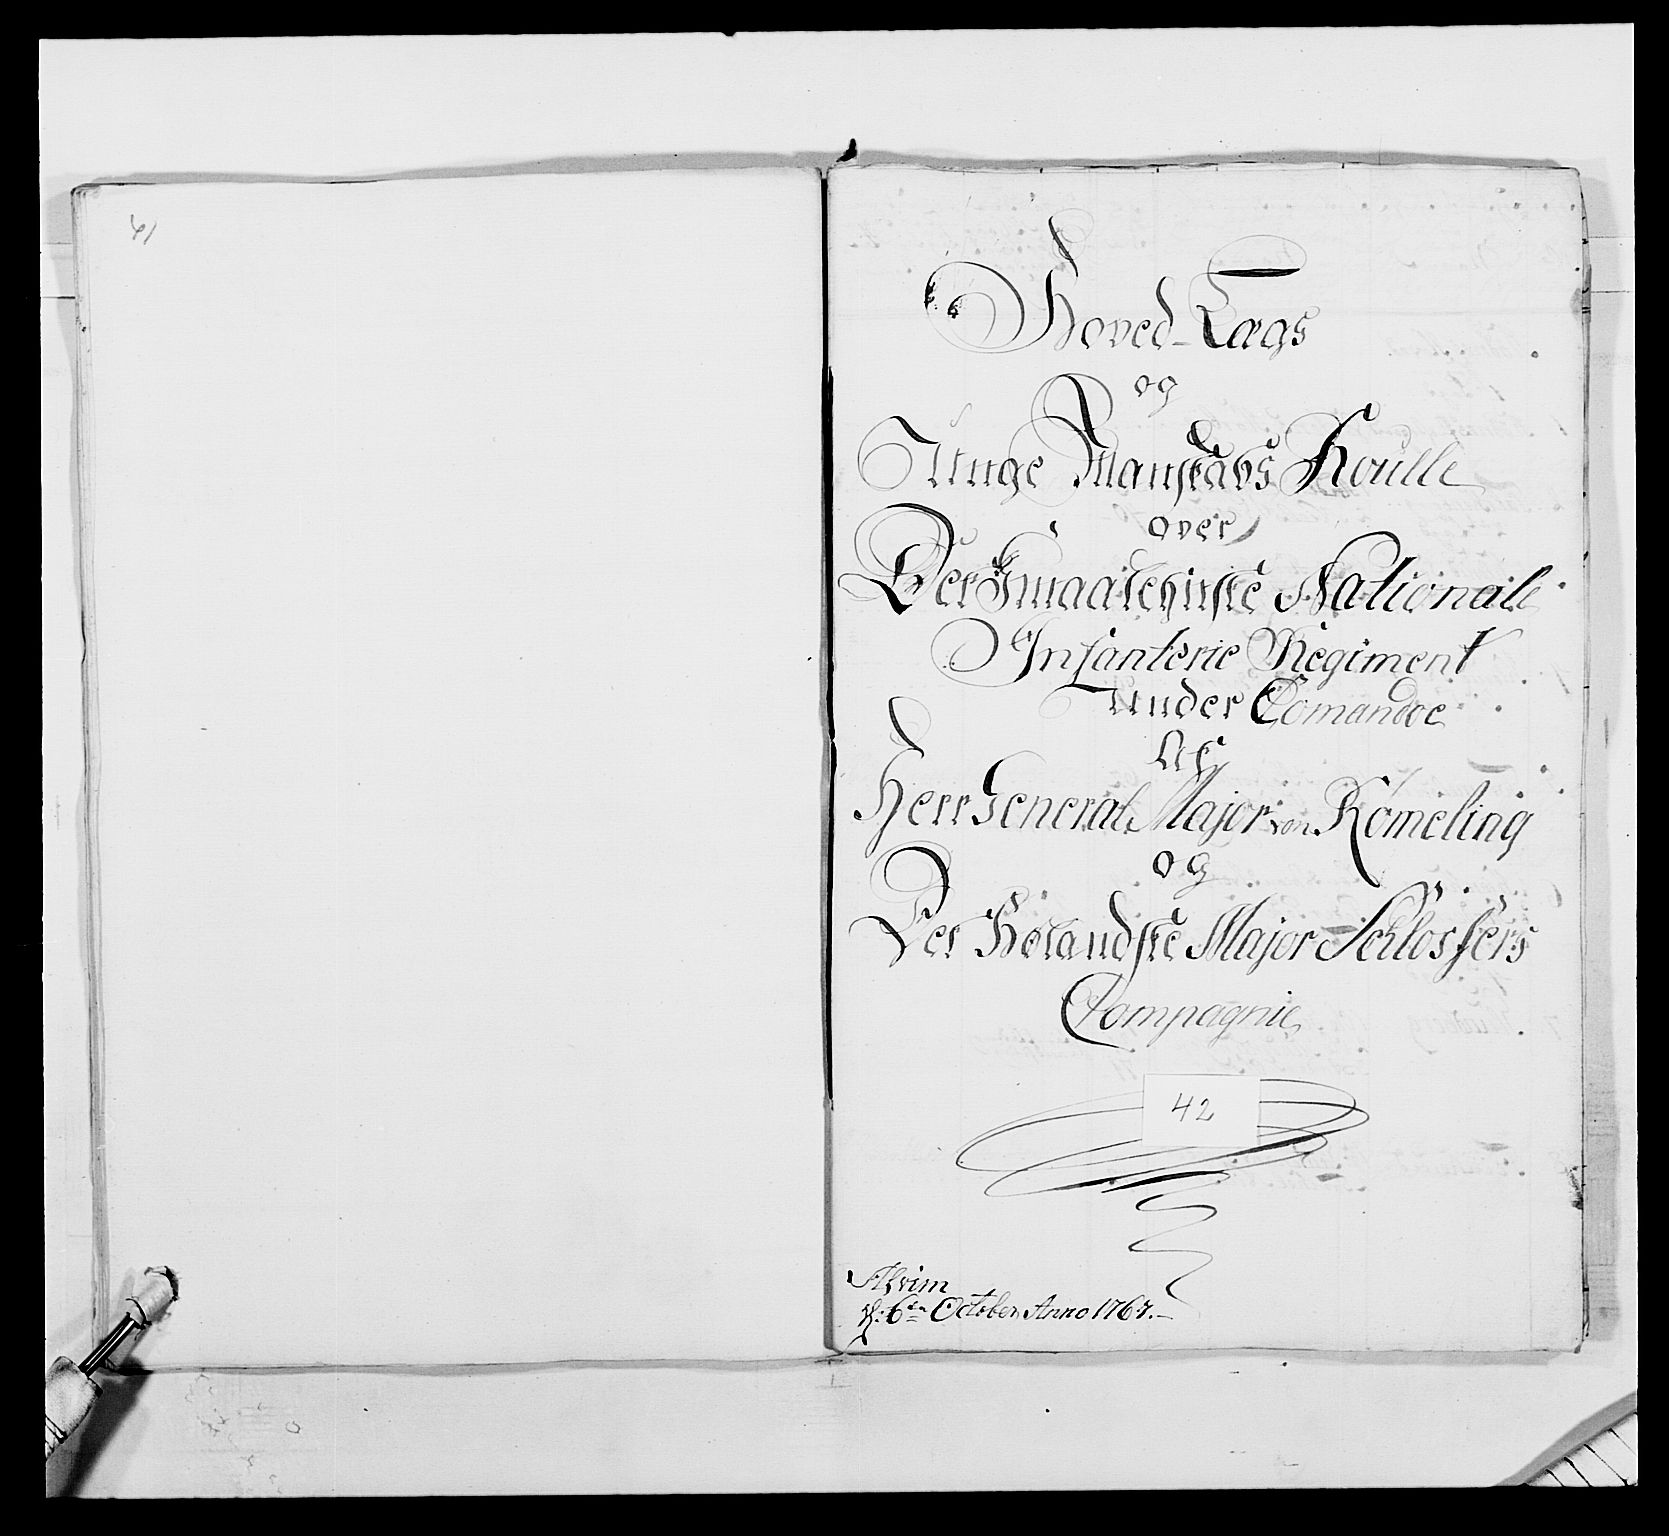 Hoved-Lægs
og
Unge Manskabs Roulle
over
Det Smaalehnske Nationale
Infanterie Regiment
under Comandoe
Af
Herr General Major von Rømeling
og
Det Hølandske Major Schlossers
Compagnie
42
Alvim
d: 6te October Anno 1767.